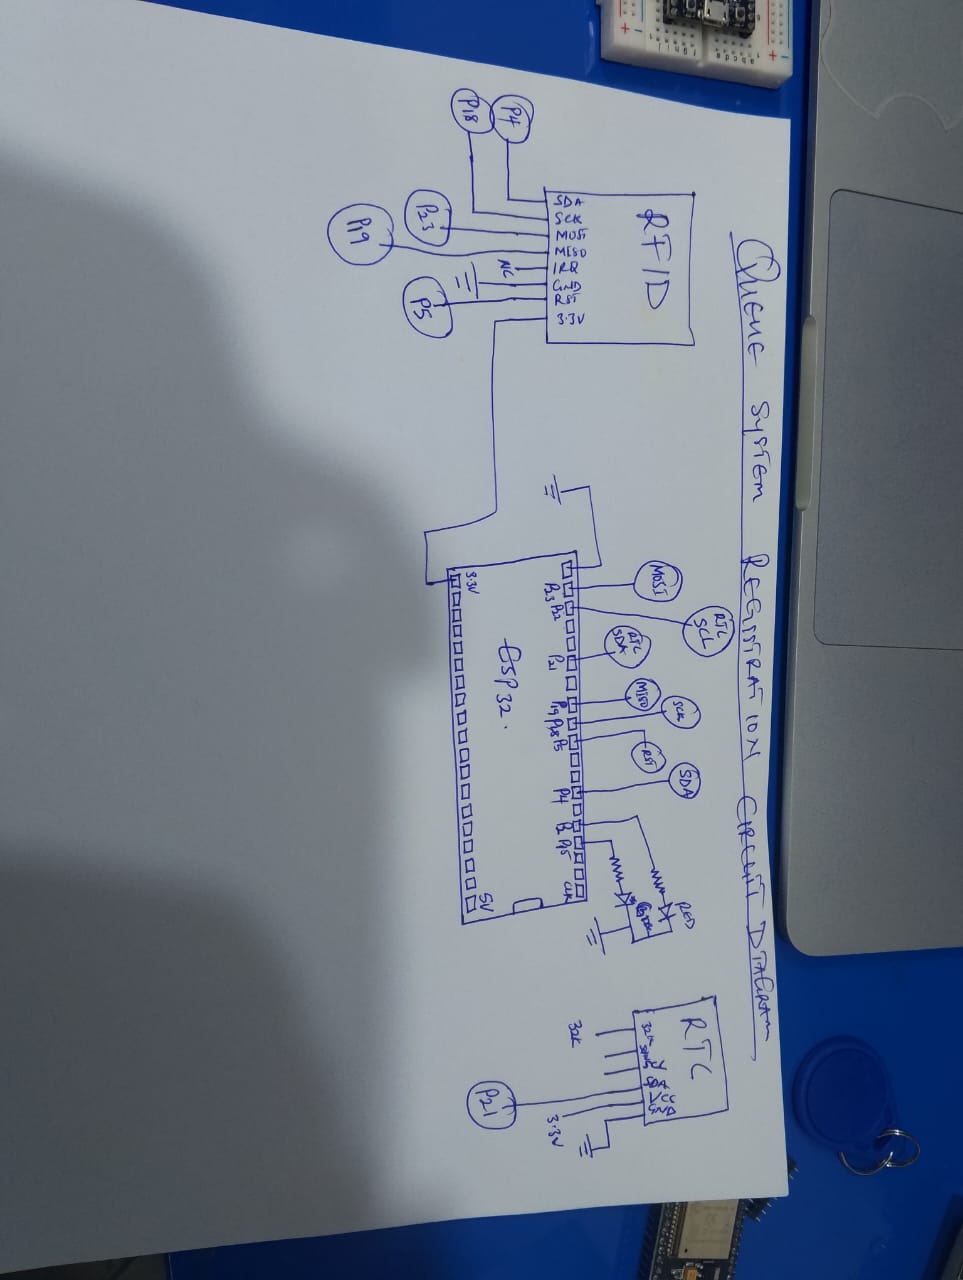 QUEUE SYSTEM REGISTRATION CIRCUIT DIAGRAM
RFID
SDA
SCK
MOSI
MISO
IRQ
GND
RST
3.3V
P4
P18
P23
P19
NC
P5
ESP32.
3.3V
5V
P23
P22
P21
P19
P18
P5
P4
P15
CLK
MOSI
RTC
SCL
RTC
SDA
MISO
SCK
RST
SDA
RED
RTC
32K
32K
P21
3.3V